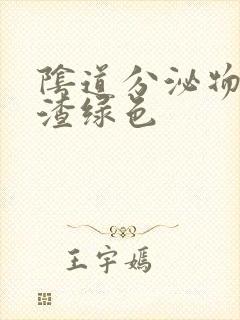 陰道分泌物
渣绿色
王宇嫣